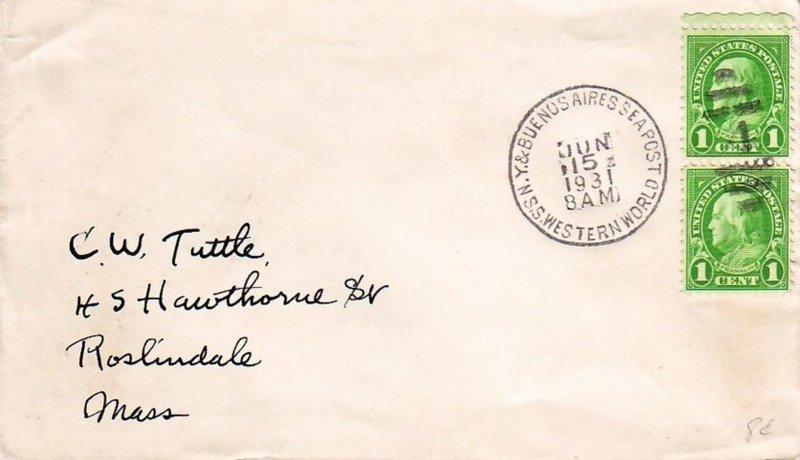 UNITED STATES POSTAGE
1 1
CENT
UNITED STATES POSTAGE
FRANKLIN
1 1
CENT
N.Y. & BUENOS AIRES SEA POST
JUN
15
1931
8 AM
S.S. WESTERN WORLD
1
C. W. Tuttle,
45 Hawthorne St
Roslindale
Mass
8¢